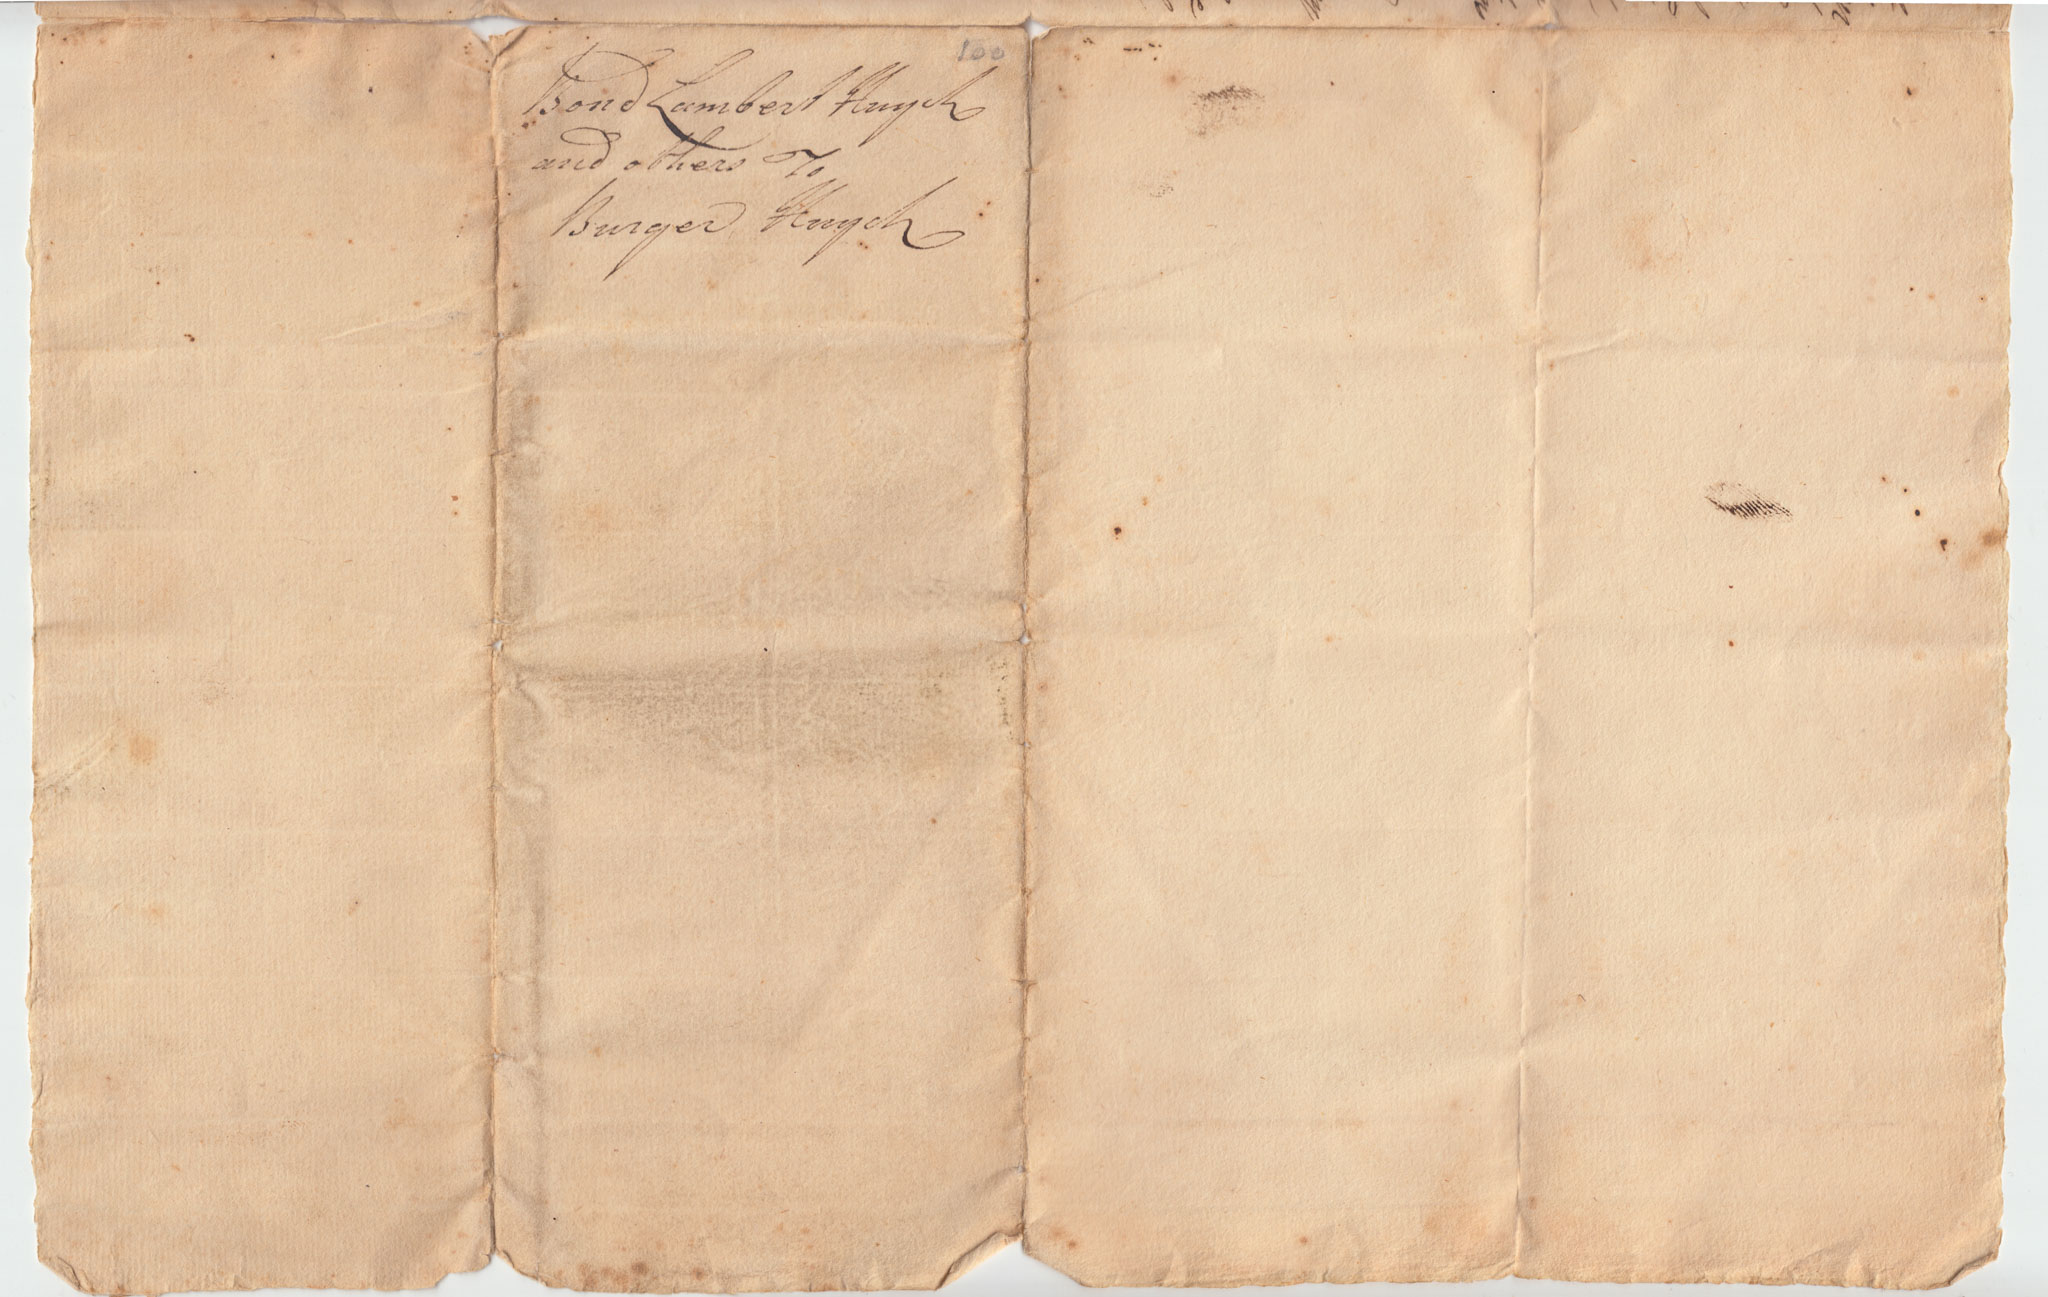 100
Bond Lambert Huyck
and others To
Burger Huyck